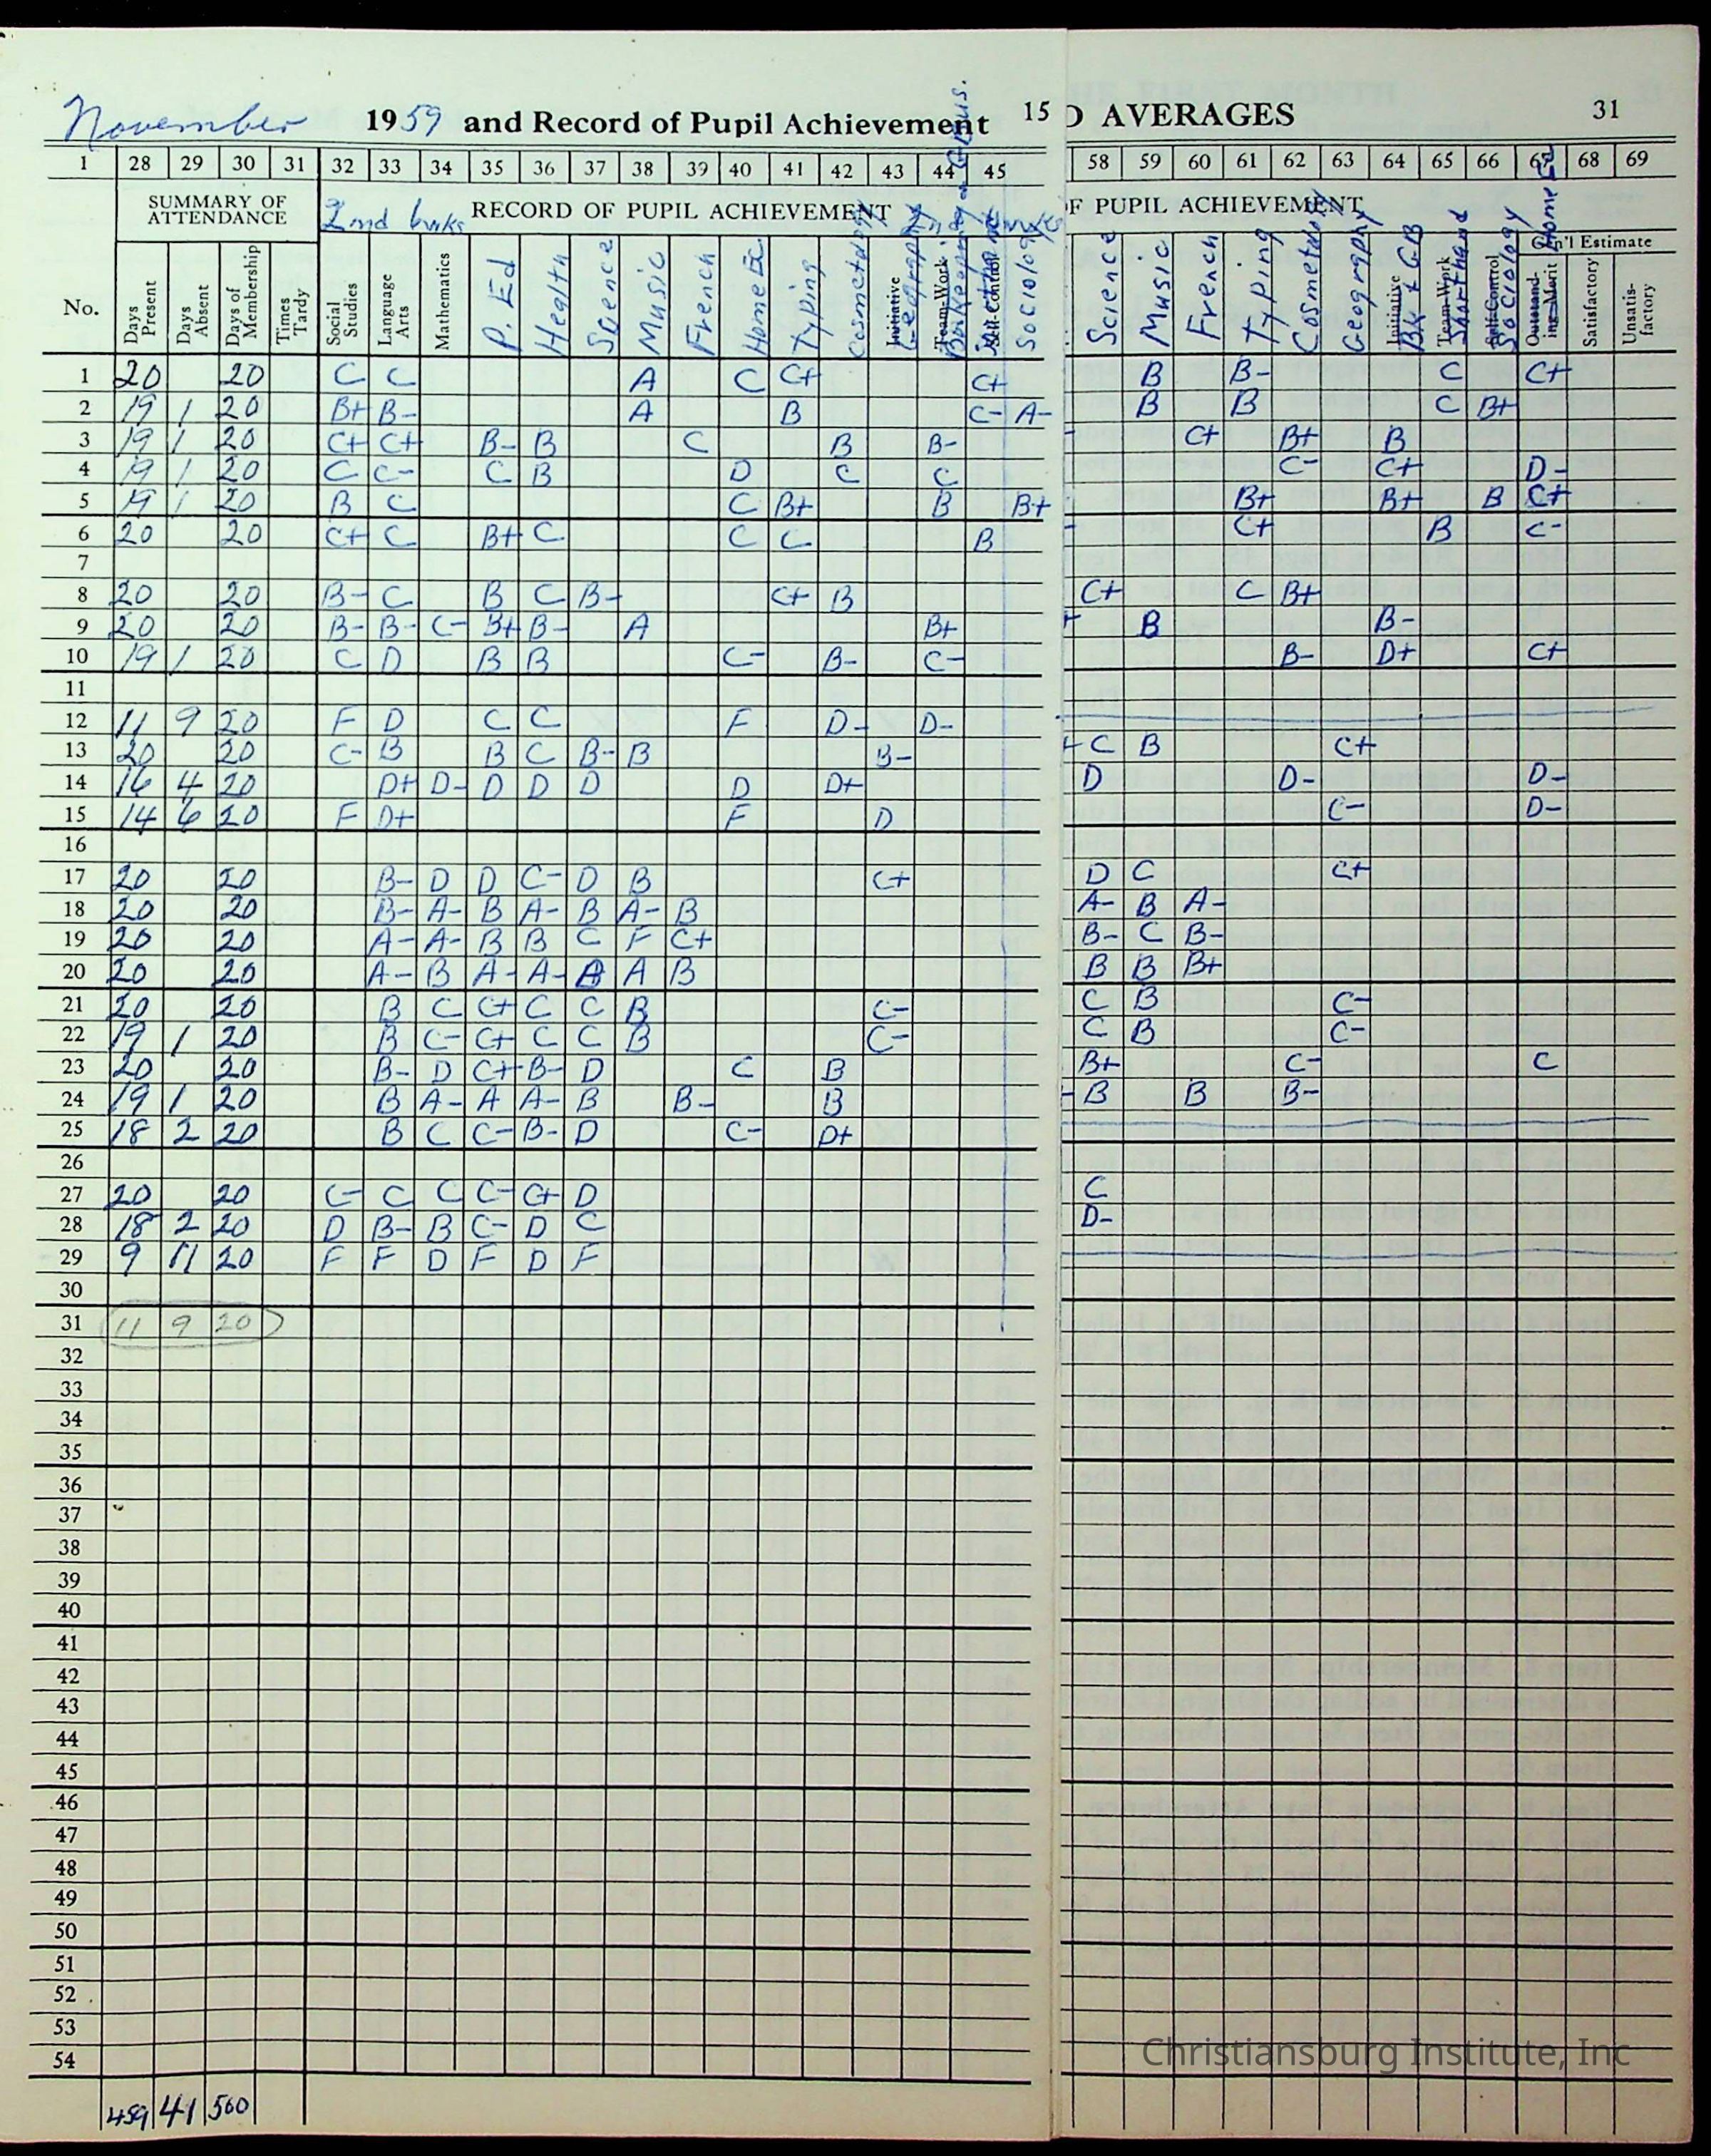 November 1959 and Record of Pupil Achievement 15 D AVERAGES 31
1 28 29 30 31 32 33 34 35 36 37 38 39 40 41 42 43 44 45 58 59 60 61 62 63 64 65 66 67 68 69
SUMMARY OF ATTENDANCE 2nd 6wks RECORD OF PUPIL ACHIEVEMENT OF PUPIL ACHIEVEMENT
Gen'l Estimate
No. Days Present Days Absent Days of Membership Times Tardy Social Studies Language Arts Mathematics P. Ed Health Science Music French Home Ec Typing Cosmetology Initiative Geography Team-Work Self-Control Sociology Science Music French Typing Cosmetology Geography Initiative Bk + GB Team-Work Shorthand Self-Control Sociology Outstanding Merit Home Ec Satisfactory Unsatisfactory
1 20 20 C C A C C+ C+ B B- C C+
2 19 1 20 B+ B- A B C- A- B B C B+
3 19 1 20 C+ C+ B- B C B B- - C+ B+ B
4 19 1 20 C C- C B D C C C- C+ D-
5 19 1 20 B C C B+ B B+ B+ B+ B C+
6 20 20 C+ C B+ C C C B - C+ B C-
7
8 20 20 B- C B C B- C+ B C+ C B+
9 20 20 B- B- C- B+ B- A B+ + B B-
10 19 1 20 C D B B C- B- C- B- D+ C+
11
12 11 9 20 F D C C F D- D-
13 20 20 C- B B C B- B B- + C B C+
14 16 4 20 D+ D- D D D D D+ D D- D-
15 14 6 20 F D+ F D C- D-
16
17 20 20 B- D D C- D B C+ D C C+
18 20 20 B- A- B A- B A- B A- B A-
19 20 20 A- A- B B C F C+ B- C B-
20 20 20 A- B A- A- A A B B B B+
21 20 20 B C C+ C C B C- C B C-
22 19 1 20 B C- C+ C C B C- C B C-
23 20 20 B- D C+ B- D C B B+ C- C
24 19 1 20 B A- A A- B B- B - B B B-
25 18 2 20 B C C- B- D C- D+
26
27 20 20 C- C C C- C+ D C
28 18 2 20 D B- B C- D C D-
29 9 11 20 F F D F D F
30
31 11 9 20
32
33
34
35
36
37
38
39
40
41
42
43
44
45
46
47
48
49
50
51
52
53
54
459 41 500
Christiansburg Institute, Inc